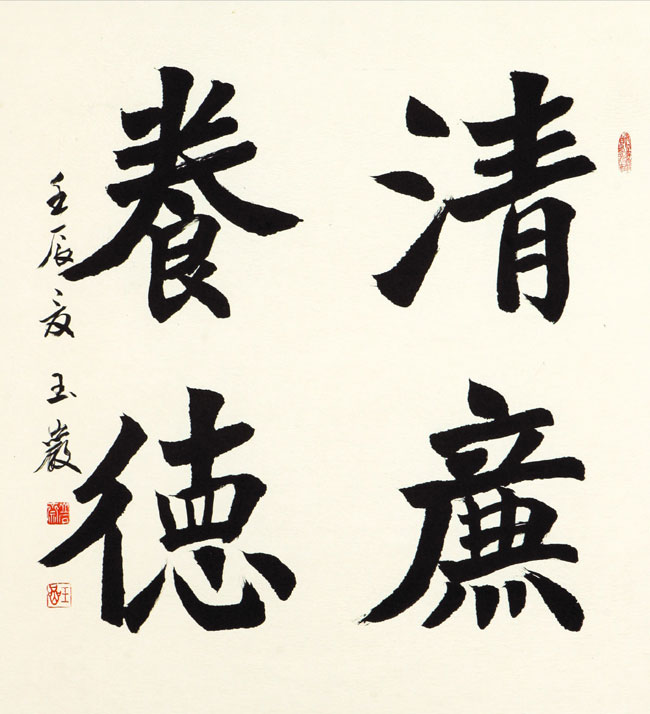 清廉
養德
壬辰夏 玉巖